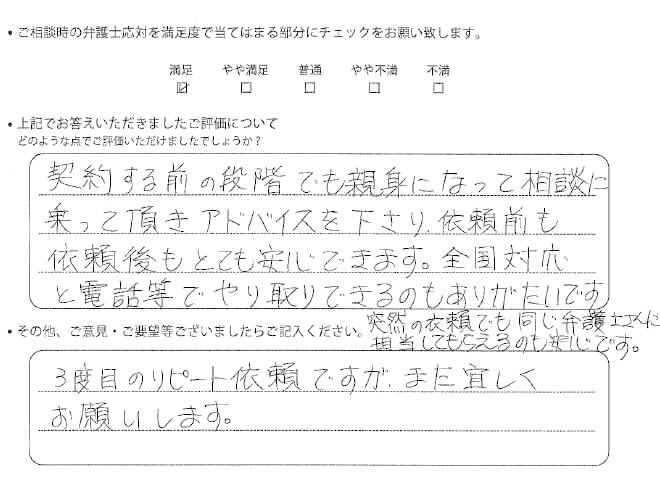 • ご相談時の弁護士応対を満足度で当てはまる部分にチェックをお願い致します。
満足 やや満足 普通 やや不満 不満
☑ ☐ ☐ ☐ ☐
• 上記でお答えいただきましたご評価について
どのような点でご評価いただけましたでしょうか？
契約する前の段階でも親身になって相談に
乗って頂きアドバイスを下さり、依頼前も
依頼後もとても安心できます。全国対応
と電話等でやり取りできるのもありがたいです
突然の依頼でも同じ弁護士さんに
担当してもらえるのも安心です。
• その他、ご意見・ご要望等ございましたらご記入ください。
3度目のリピート依頼ですが、また宜しく
お願いします。